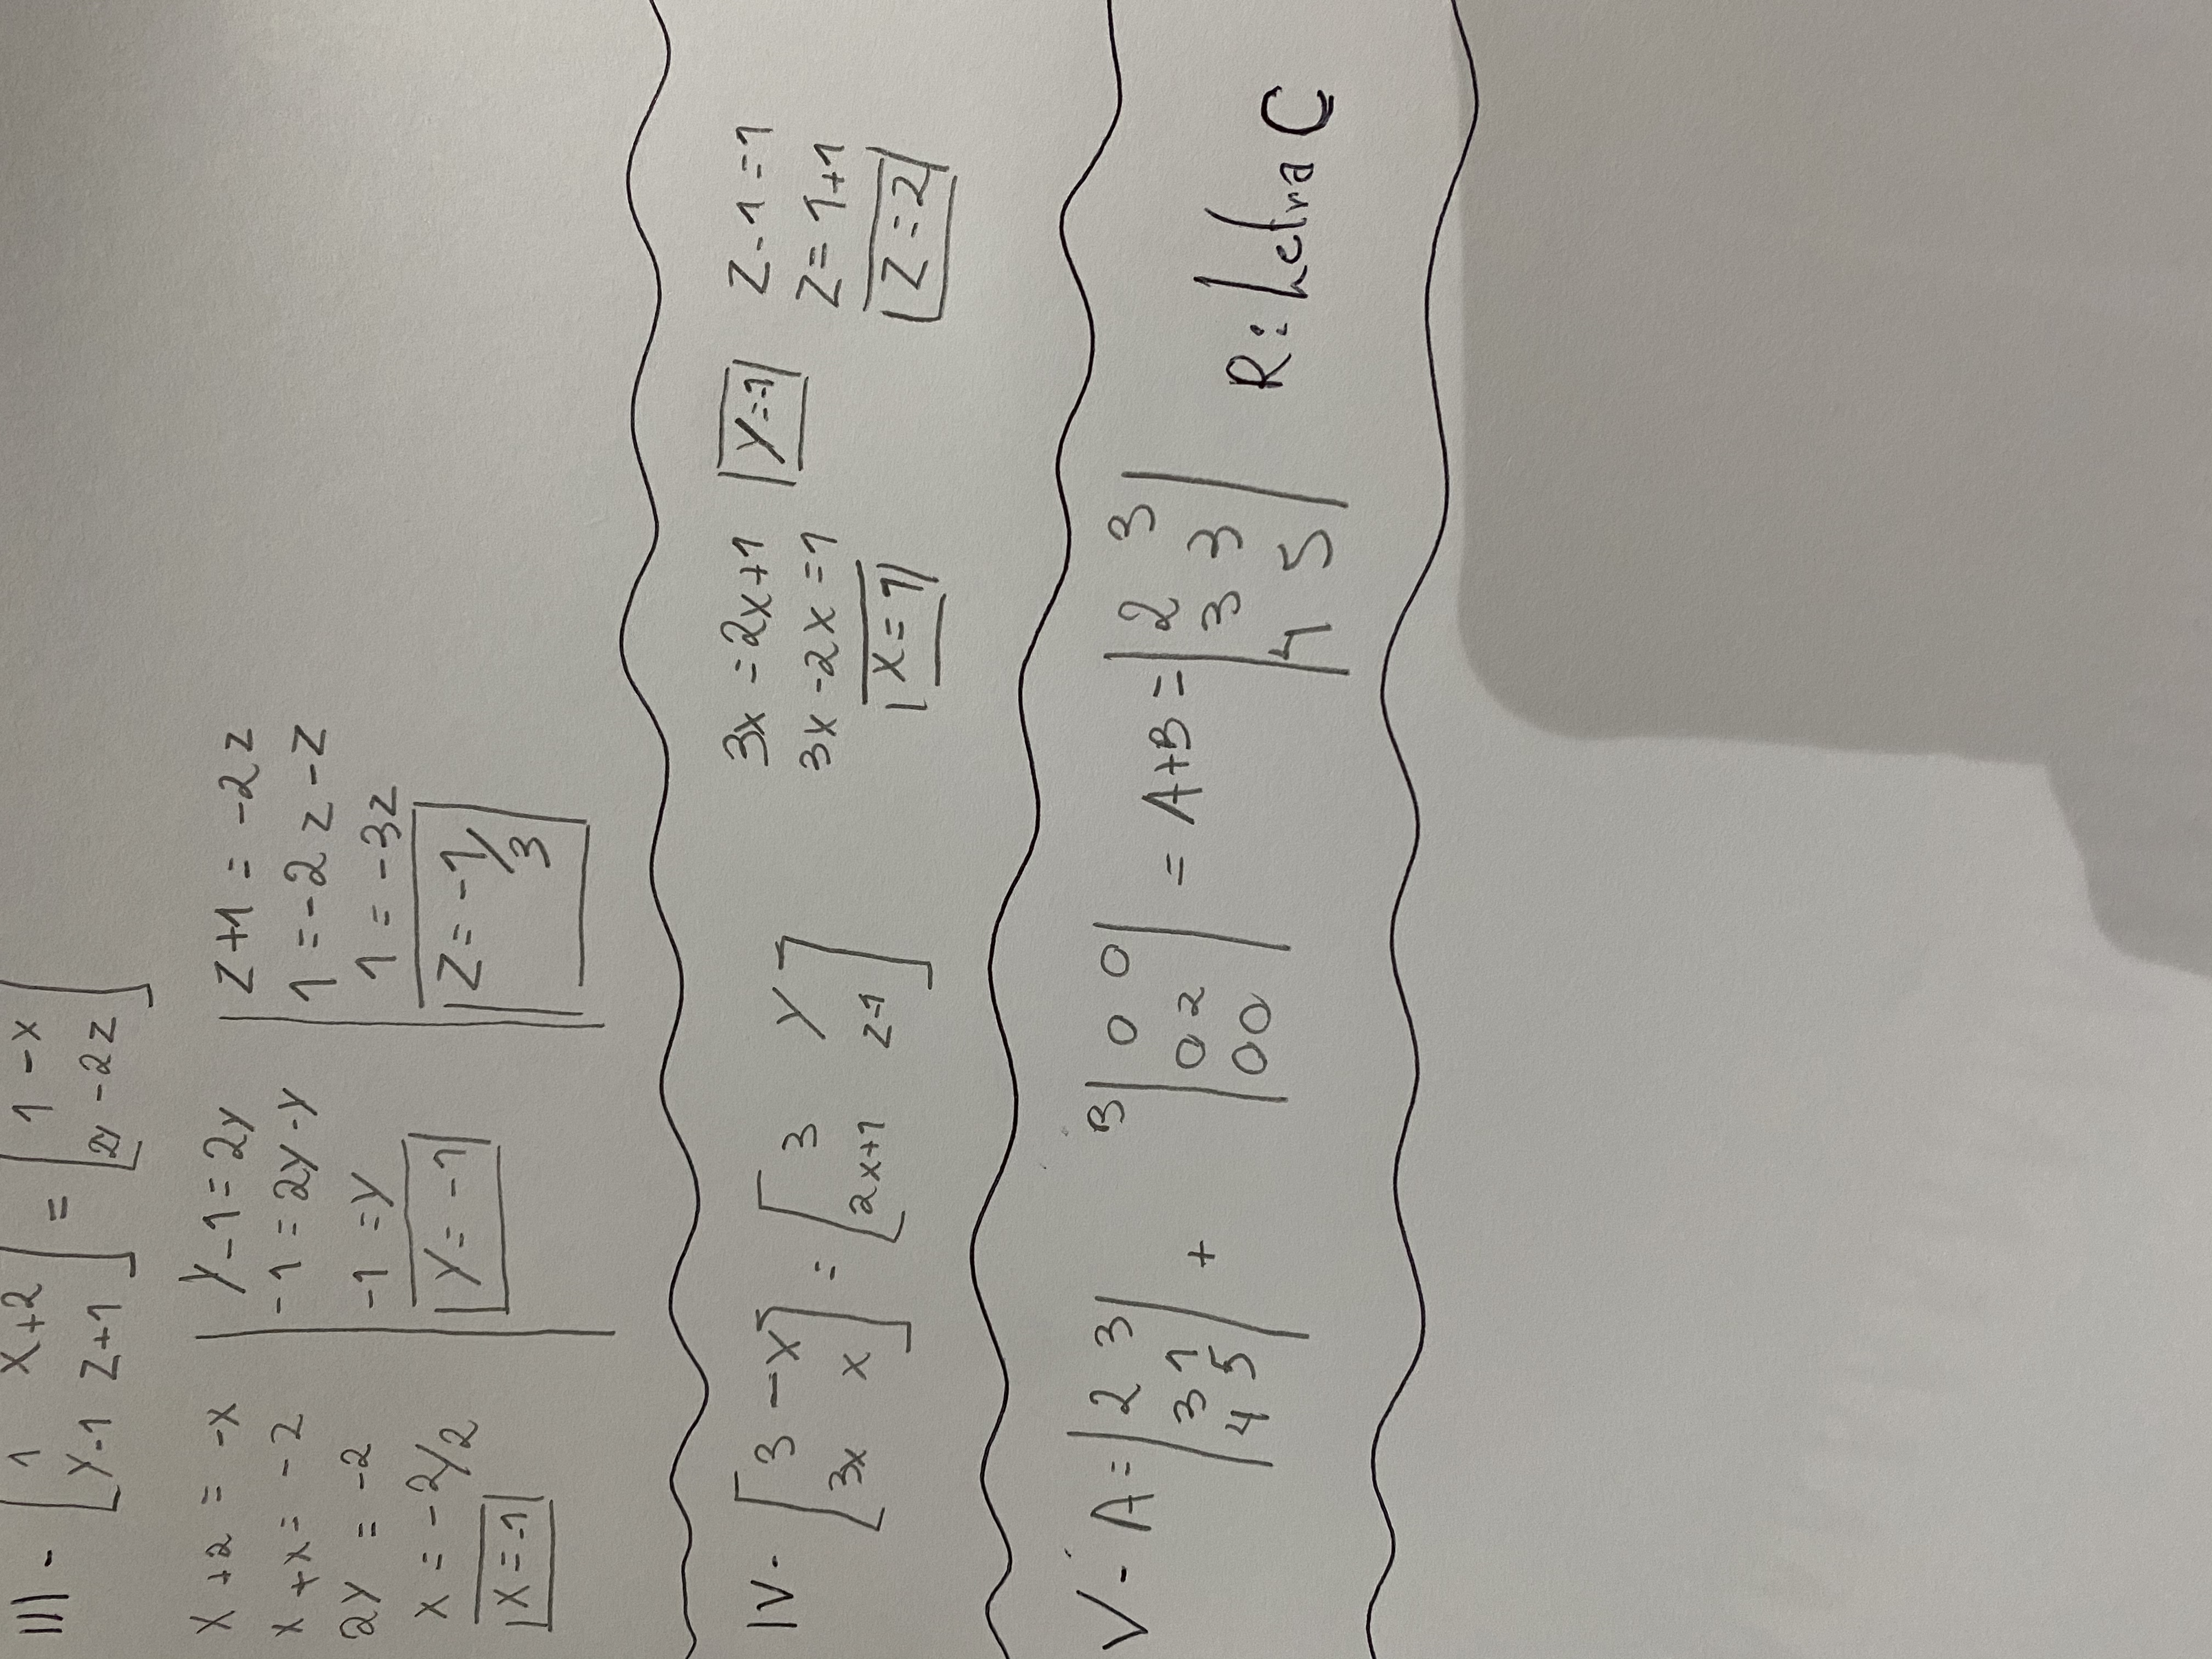 III - [ 1 x+2 ] = [ 1 -x ]
[ y-1 z+1 ] [ 2y -2z ]
x +2 = -x
x +x= -2
2y = -2
x = -2/2
x=-1
y-1=2y
-1=2y-y
-1=y
y=-1
z+1 = -2z
1=-2z-z
1=-3z
z=-1/3
IV- [ 3 -x ] = [ 3 y ]
[ 3x x ] [ 2x+1 z-1 ]
3x=2x+1
3x-2x=1
x=1
y=-1
z-1=1
z=1+1
z=2
V- A= | 2 3 | + B | 0 0 | = A+B = | 2 3 |
| 3 1 | | 0 2 | | 3 3 |
| 4 5 | | 0 0 | | 4 5 |
R: Letra C